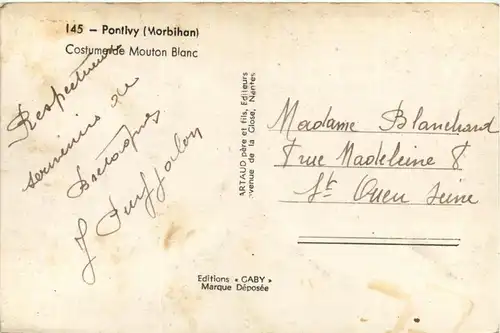 145 — Pontivy (Morbihan)
Costume de Mouton Blanc
Respectueux
souvenirs de
Bretagne
J
ARTAUD père et fils, Editeurs
avenue de la Close, Nantes
Madame Blanchard
7 rue Madeleine 8
St Ouen Seine
Editions « GABY »
Marque Déposée